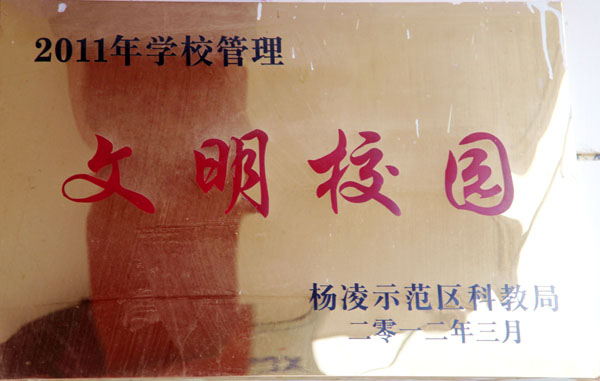 2011年学校管理
文明校园
杨凌示范区科教局
二零一二年三月